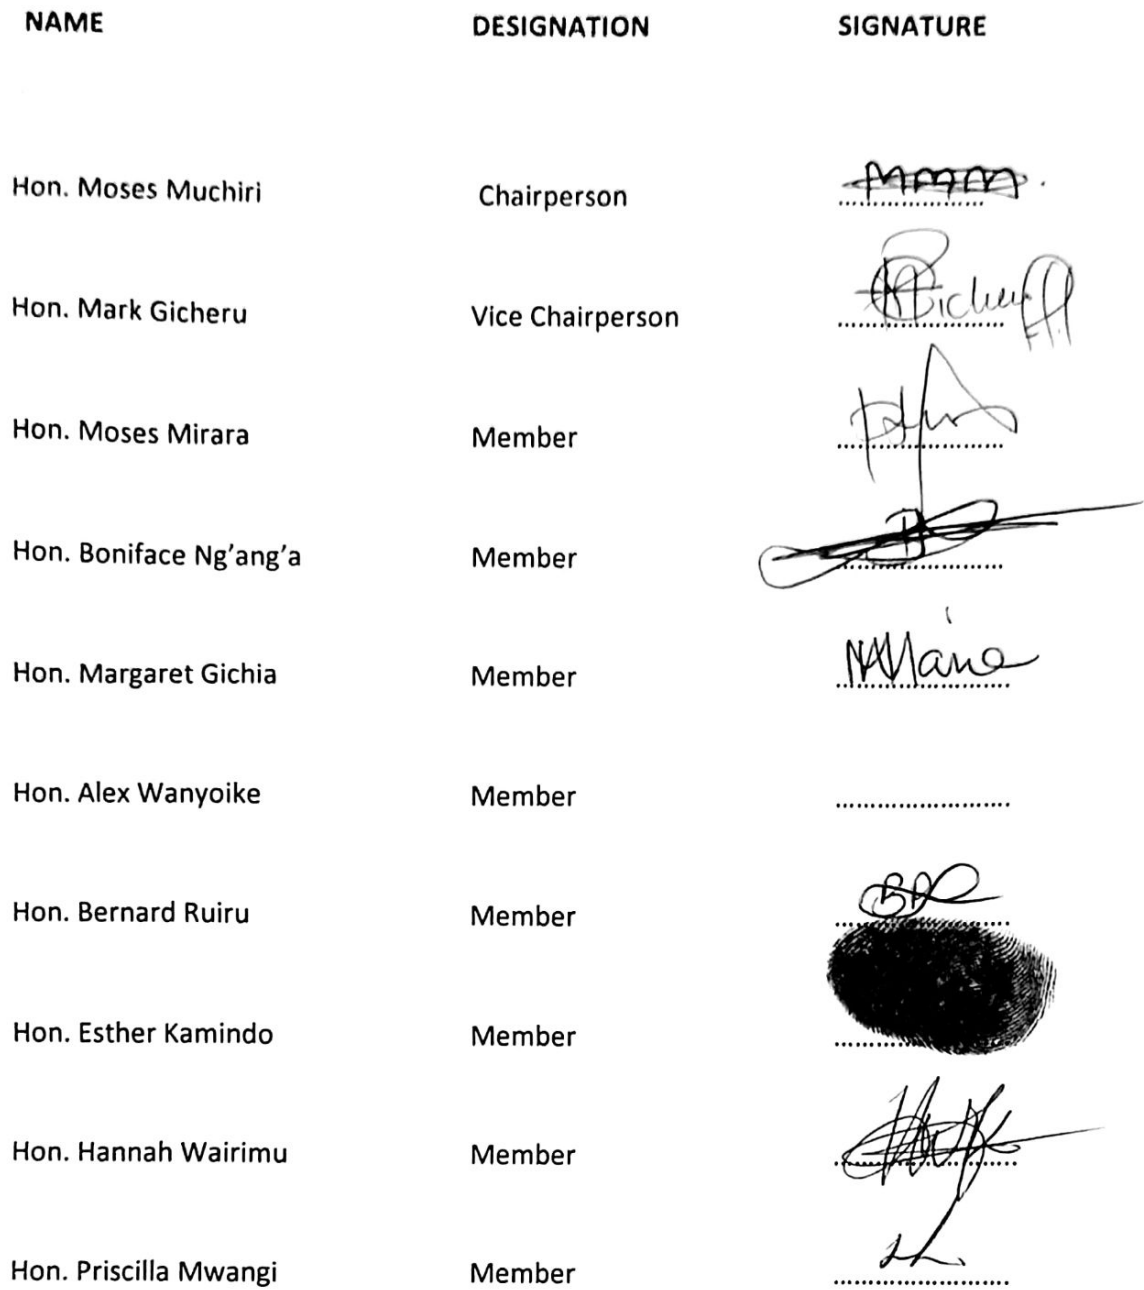 NAME DESIGNATION SIGNATURE
Hon. Moses Muchiri Chairperson
Hon. Mark Gicheru Vice Chairperson
Hon. Moses Mirara Member
Hon. Boniface Ng'ang'a Member
Hon. Margaret Gichia Member
Hon. Alex Wanyoike Member ........................
Hon. Bernard Ruiru Member
Hon. Esther Kamindo Member
Hon. Hannah Wairimu Member
Hon. Priscilla Mwangi Member